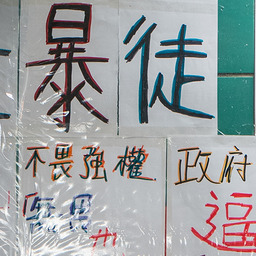 暴徒
不畏強權 政府
逼